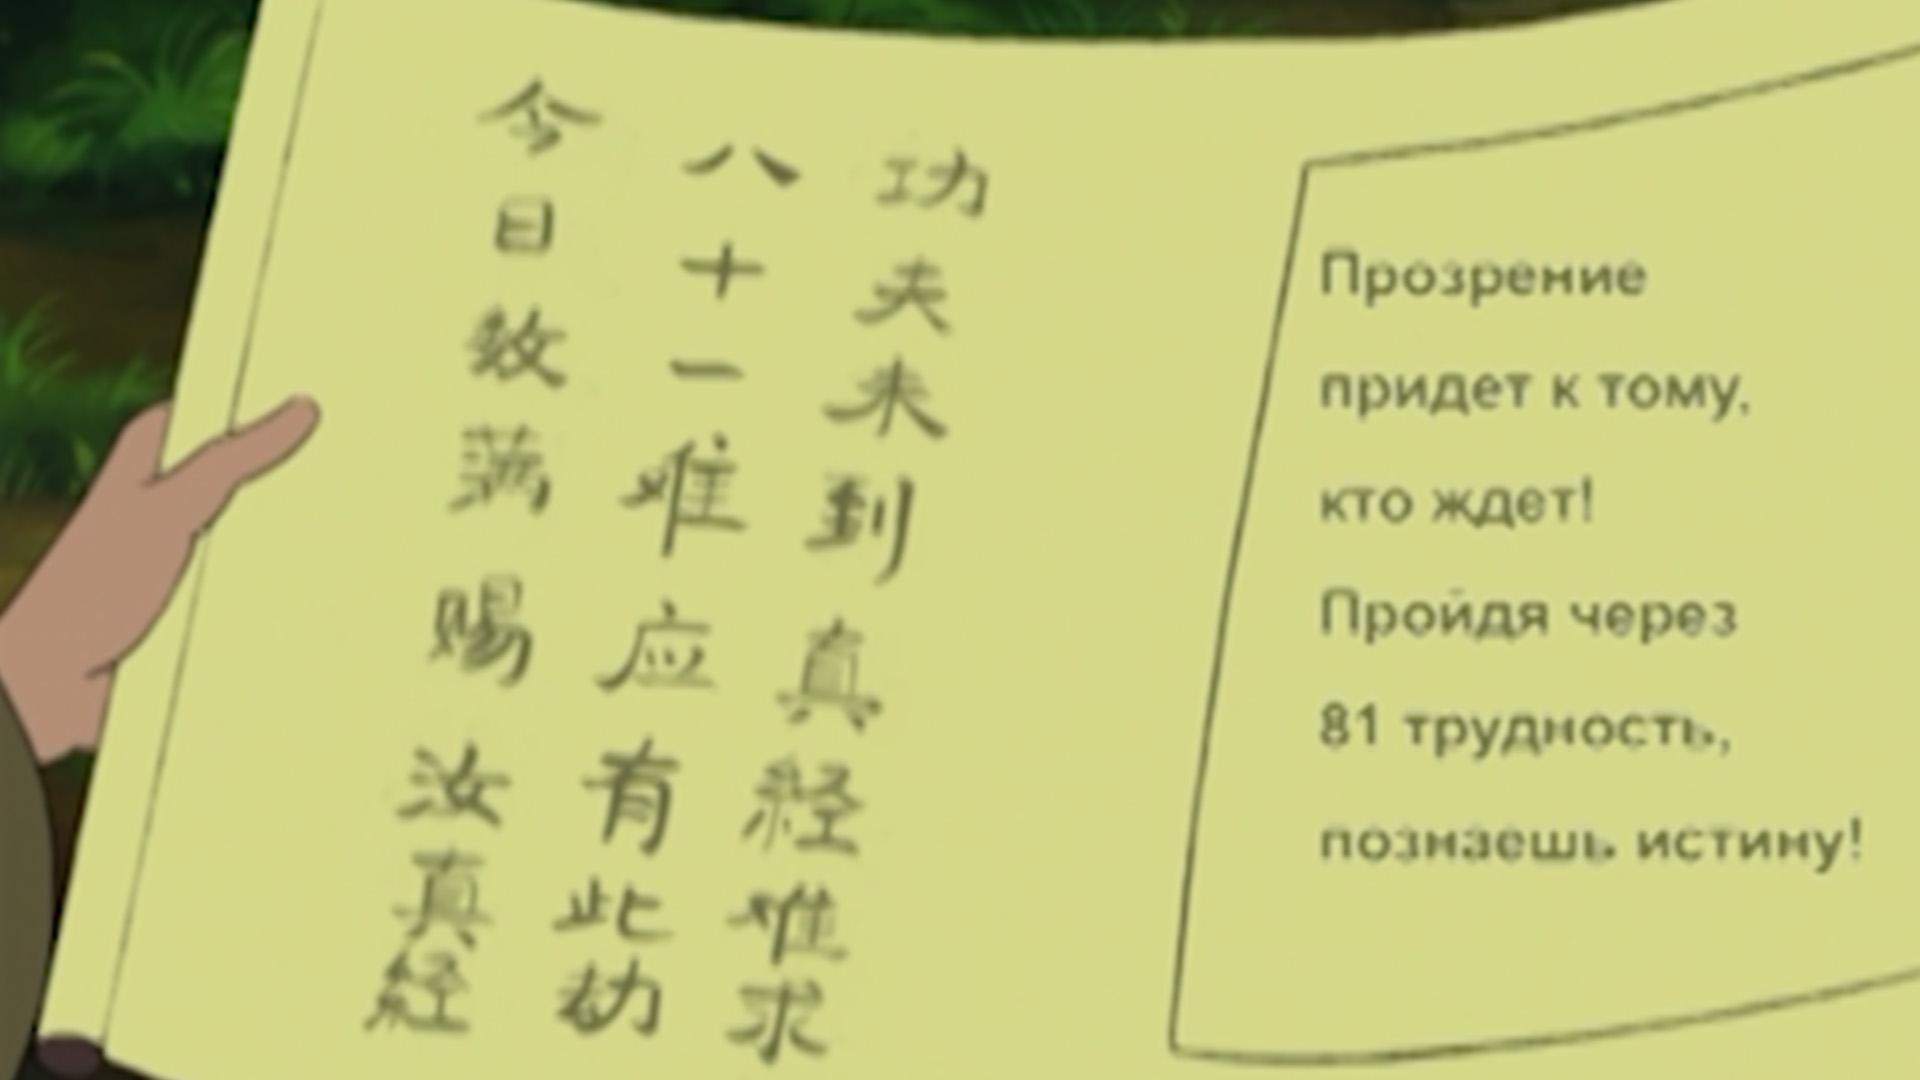 功夫未到真経难求
八十一难应有此劫
今日数满赐汝真経
Прозрение
придет к тому,
кто ждет!
Пройдя через
81 трудность,
познаешь истину!